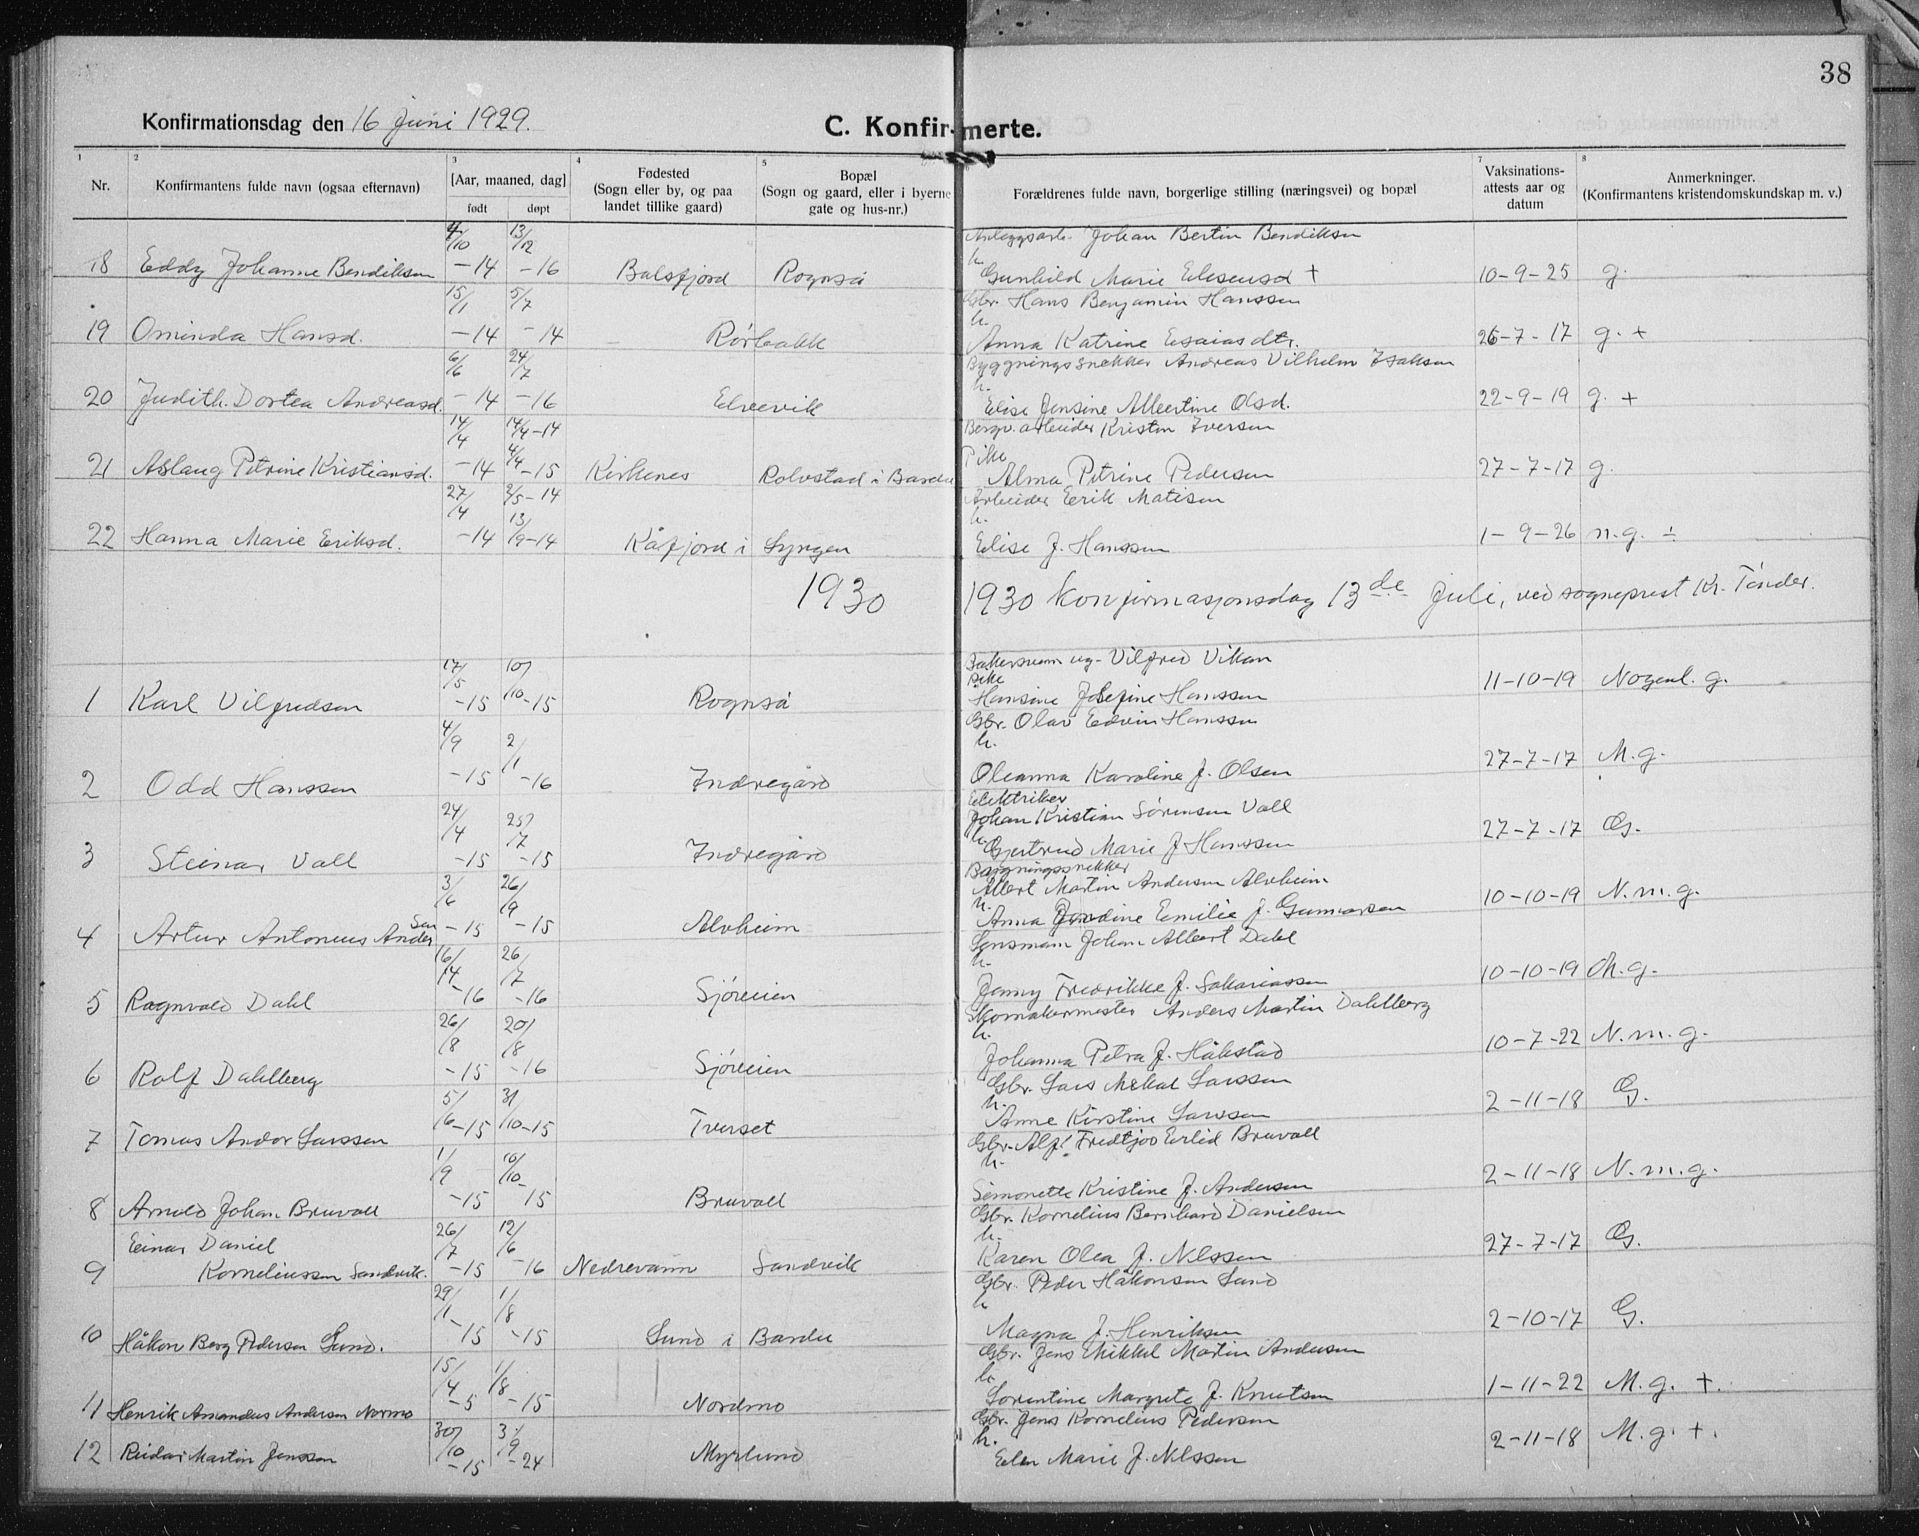 38
Konfirmationsdag den 16 Juni 1929.
C. Konfirmerte.
1 2 3 4 5 7 8
Nr.
Konfirmantens fulde navn (ogsaa efternavn)
[Aar, maaned, dag]
født døpt
Fødested
(Sogn eller by, og paa
landet tillike gaard)
Bopæl
(Sogn og gaard, eller i byerne
gate og hus-nr.)
Forældrenes fulde navn, borgerlige stilling (næringsvei) og bopæl
Vaksinations-
attests aar og
datum
Anmerkninger.
(Konfirmantens kristendomskundskap m. v.)
4/10 13/12 Anlægsarb. Johan Bertin Bendiksen
18 Eddy Johanne Bendiksen -14 -16 Balsfjord Rognså h. Gunhild Marie Elisensd + 10-9-25 g.
15/1 5/7 Gbr. Hans Benjamin Hanssen
19 Ominda Hansd. -14 -14 Rørbakk h. Anna Katrine Esaiasdtr. 26-7-17 g. +
6/6 24/7 Bygningssnekker Andreas Vilhelm Isaksen
20 Judith Dortea Andreasd. -14 -16 Elvevik h. Elise Jensine Albertine Olsd. 22-9-19 g. +
14/4 14/4-14 Bergv. arbeider Kristen Iversen
21 Aslaug Petrine Kristiansd. -14 4/4-15 Kirkenes Rolvstad i Bardu Pike Alma Petrine Pedersen 27-7-17 g.
27/4 2/5-14 Arbeider Erik Matisen
22 Hanna Marie Eriksd. -14 13/9-14 Kåfjord i Lyngen h. Elise J. Hanssen 1-9-26 n.g. ÷
1930 1930 Konfirmasjonsdag 13de Juli, ved sogneprest Kr. Tönder.
17/5 10/10 Bakersvenn ug. Vilfred Vikan
1 Karl Vilfredsen -15 -15 Rognså Pike Hansine Josefine Hanssen 11-10-19 Nogenl. g.
4/9 2/1 Gbr. Olav Edvin Hanssen
2 Odd Hanssen -15 -16 Indregård h. Oleanna Karoline f. Olsen 27-7-17 M.g.
24/4 25/7 Elektriker Johan Kristian Sørensen Vall
3 Steinar Vall -15 -15 Indregård h. Gjertrud Marie f Hanssen 27-7-17 G.
3/6 26/9 Bygningssnekker Albert Martin Andersen Alvheim
4 Artur Antonius Andersen -15 -15 Alvheim h. Anna Jendine Emilie f. Gunnarsen 10-10-19 N.m.g.
16/14 26/7 Lensmann Johan Albert Dahl
5 Ragnvald Dahl -16 -16 Sjøveien h. Jenny Fredrikke f. Sakariassen 10-10-19 M.g.
26/8 20/8 Skomakermester Anders Martin Dahlberg
6 Rolf Dahlberg -15 -16 Sjøveien h. Johanna Petra f. Håkstad 10-7-22 N.m.g.
5/6 31/10 Gbr. Lars Mekal Larssen
7 Tomas Andor Larssen -15 -15 Tverset h. Anne Kirstine Larssen 2-11-18 G.
1/9 10/10 Gbr. Alf Fredtjov Erlid Bruvoll
8 Arnold Johan Bruvoll -15 15 Bruvoll h. Simonette Kristine f. Andersen 2-11-18 N.m.g.
Einar Daniel 26/7 12/6 Gbr. Kornelius Bernhard Danielsen
9 Korneliussen Sandvik. -15 -16 Nedrevann Sandvik h. Karen Olea f. Nilssen 27-7-17 G.
29/1 1/8 Gbr. Peder Håkonsen Lund
10 Håkon Berg Pedersen Lund. -15 -15 Lund i Bardu h Magna f. Henriksen 2-10-17 G.
15/4 1/8 Gbr. Jens Mikkel Martin Andersen
11 Henrik Amandus Andersen Normo -5 -15 Nordmo h. Lorentine Margrete f. Knutsen 1-11-22 M.g. +.
30/10 3/9 Gbr. Jens Kornelius Pedersen
12 Reidar Martin Jenssen -15 -24 Myrlund h. Elen Marie f. Nilssen 2-11-18 M.g. +.